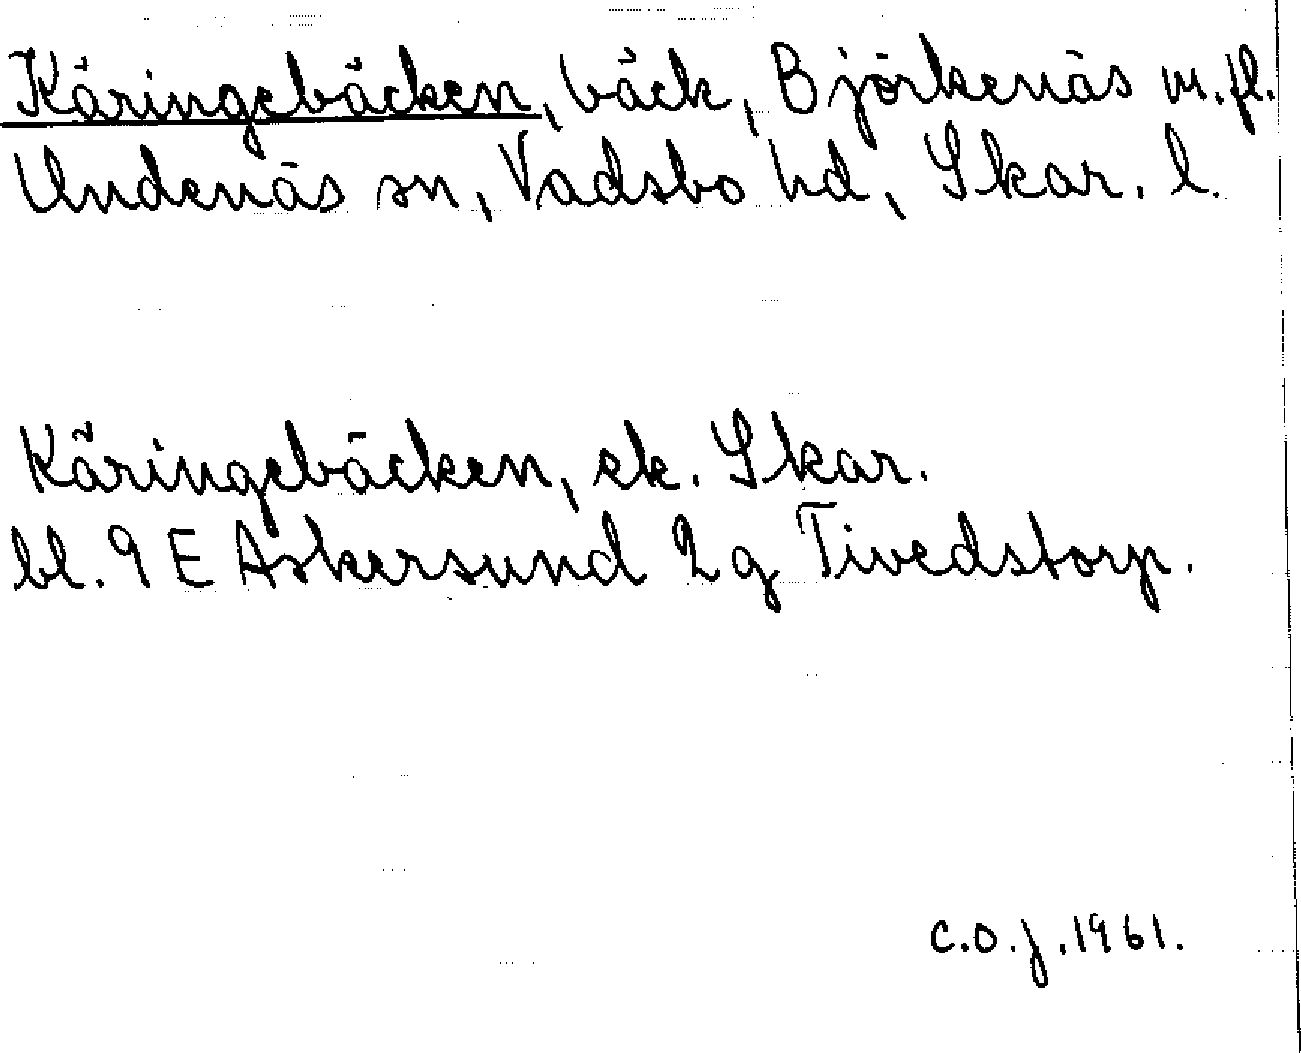 Käringebäcken, bäck, Björkenäs m.fl.
Undenäs sn, Vadsbo hd, Skar. l.
Käringebäcken, ek. Skar.
bl. 9 E Askersund 2 g Tivedstorp.
C.O.J. 1961.